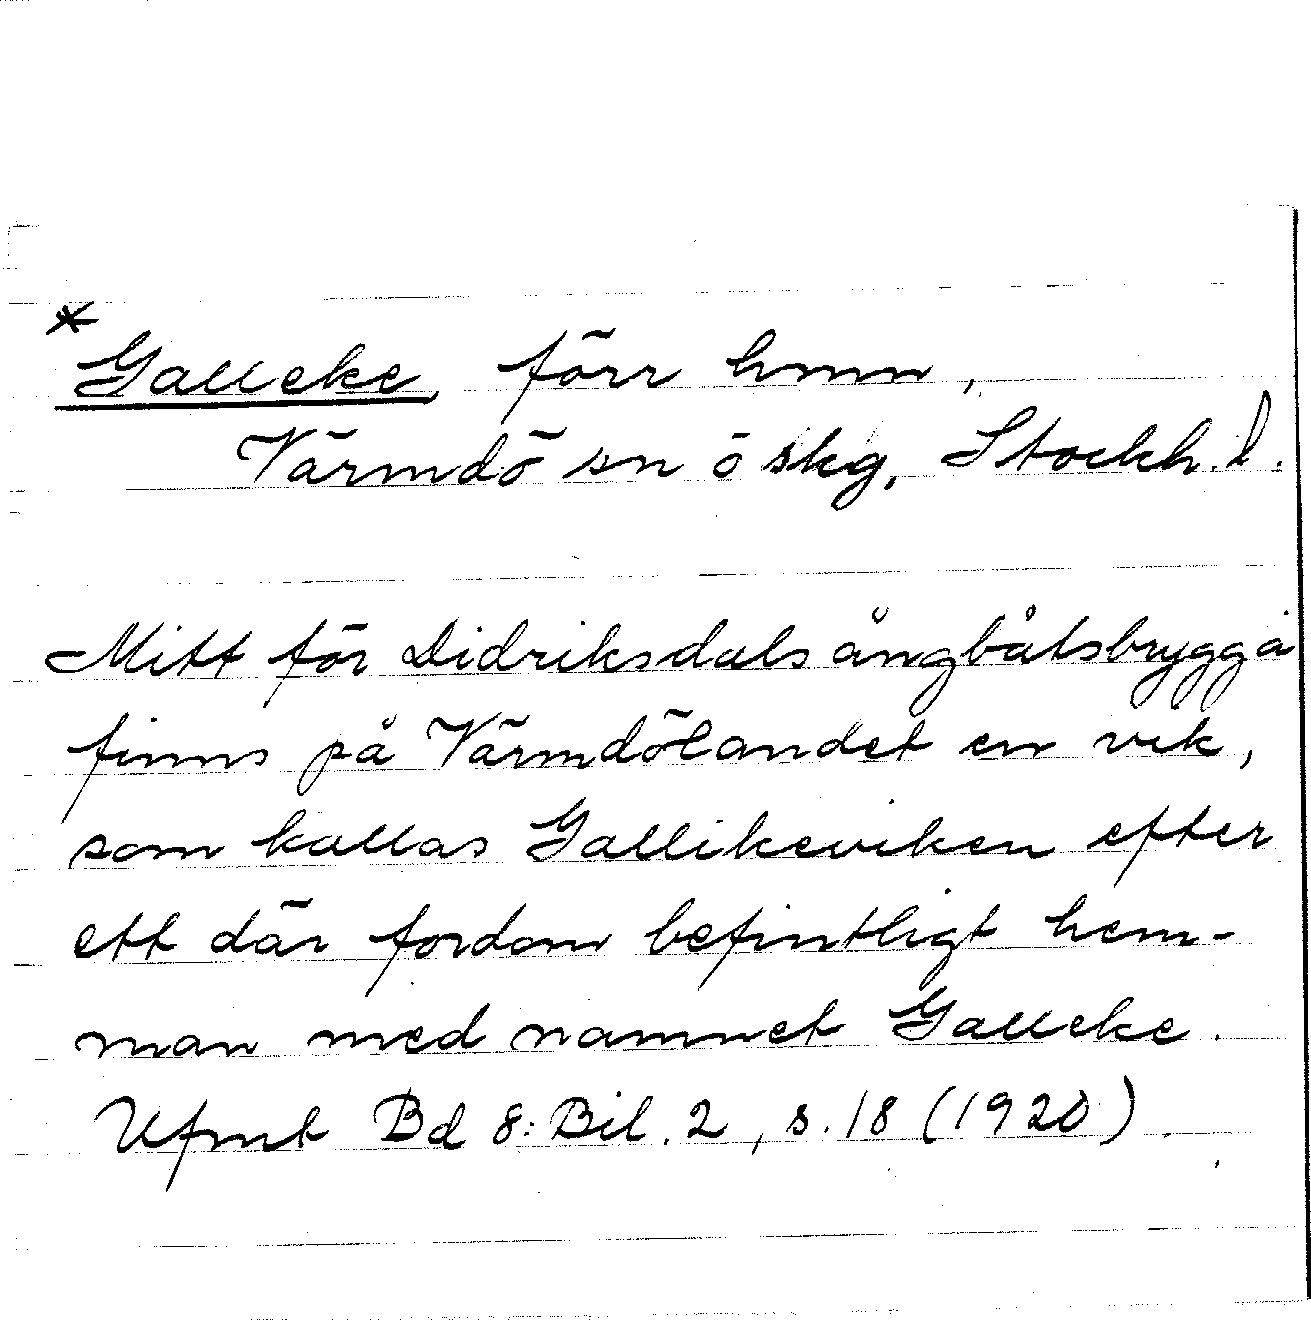 * Galleke, förr hmn,
Värmdö sn ö skg, Stockh. l.
Mitt för Didriksdals ångbåtsbrygga
finns på Värmdölandet en vik,
som kallas Gallikeviken efter
ett där fordom befintligt hem-
man med namnet Galleke.
Ufmt Bd 8: Bil. 2, s. 18 (1920).